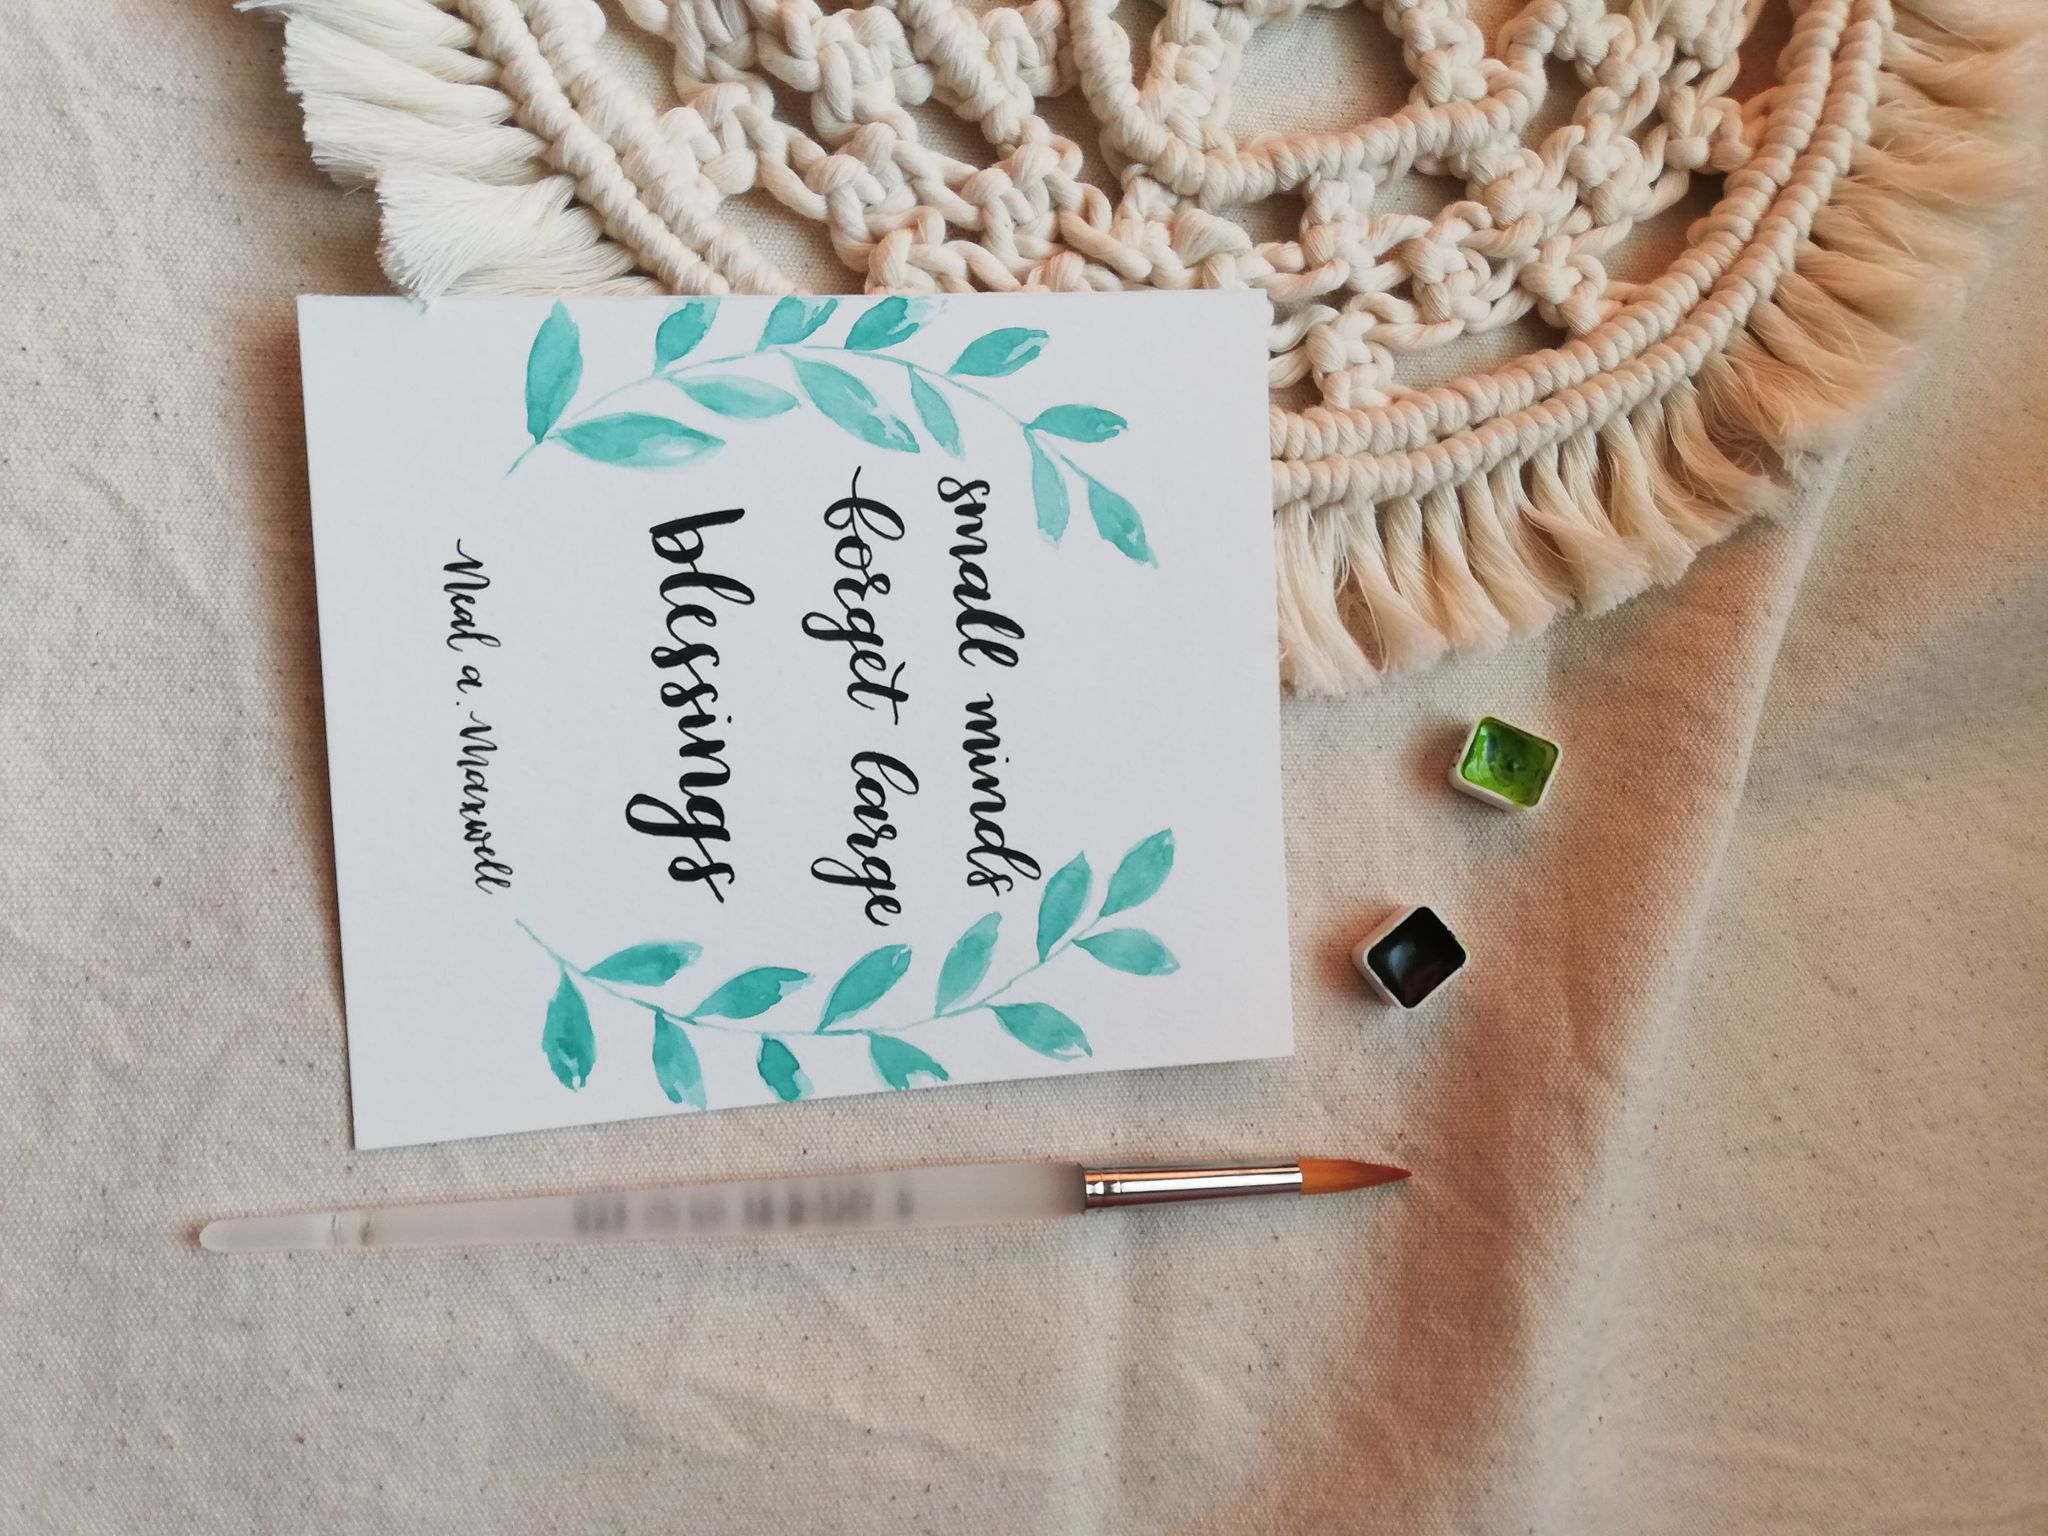 small minds
forget large
blessings
Neal a. Maxwell